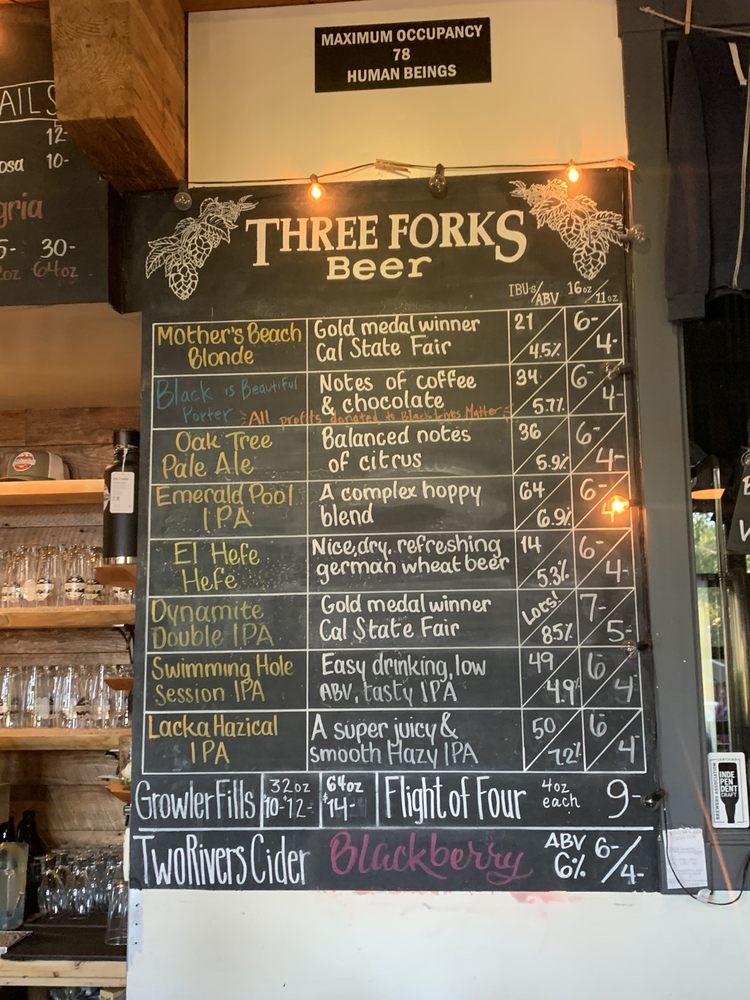 MAXIMUM OCCUPANCY
78
HUMAN BEINGS
AILS
12-
osa 10-
gria
5- 30-
oz 64oz
THREE FORKS
Beer
IBU's/ABV 16oz/11oz
Mother's Beach Blonde
Gold medal winner
Cal State Fair
21
4.5%
6-
4-
Black is Beautiful
Porter
Notes of coffee
& chocolate
All profits donated to Black Lives Matter
34
5.7%
6-
4-
Oak Tree
Pale Ale
Balanced notes
of citrus
36
5.9%
6-
4-
Emerald Pool
IPA
A complex hoppy
blend
64
6.9%
6-
4-
El Hefe
Hefe
Nice, dry, refreshing
german wheat beer
14
5.3%
6-
4-
Dynamite
Double IPA
Gold medal winner
Cal State Fair
Lots!
85%
7-
5-
Swimming Hole
Session IPA
Easy drinking, low
ABV, tasty IPA
49
4.9%
6
4
Lacka Hazical
IPA
A super juicy &
smooth Hazy IPA
50
7.2%
6
4
Growler Fills 32oz 10-12- 64oz $14- Flight of Four 4oz each 9-
Two Rivers Cider Blackberry ABV 6% 6-/4-
INDE
PEN
DENT
CRAFT